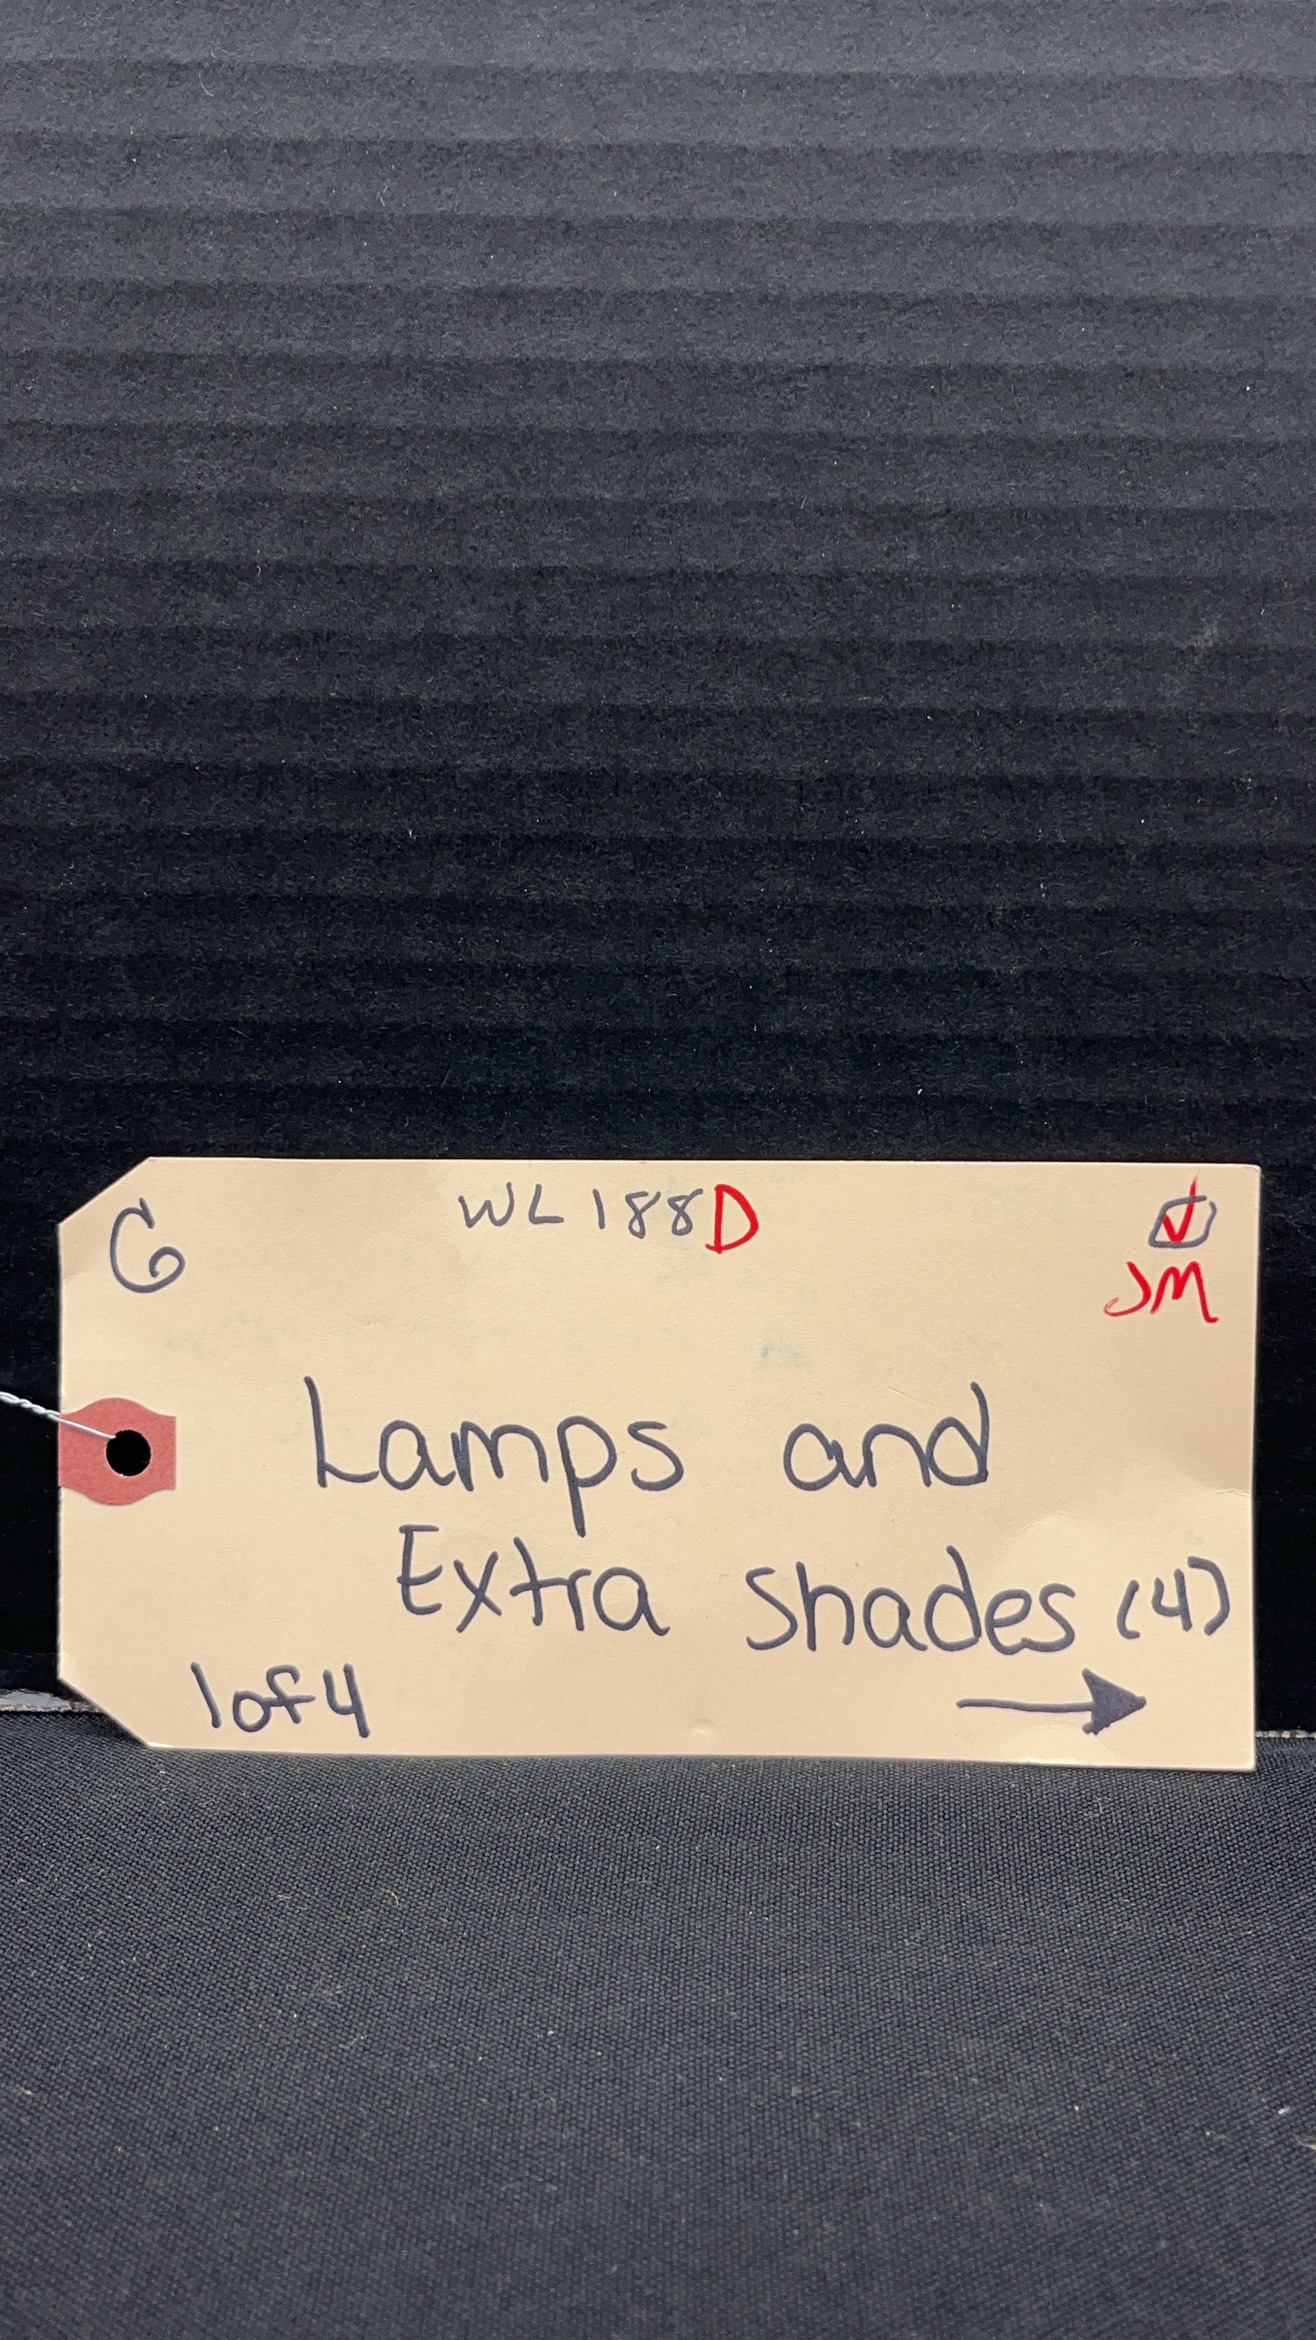 G WL188D ☑
JM
Lamps and
Extra shades (4)
1of4 →